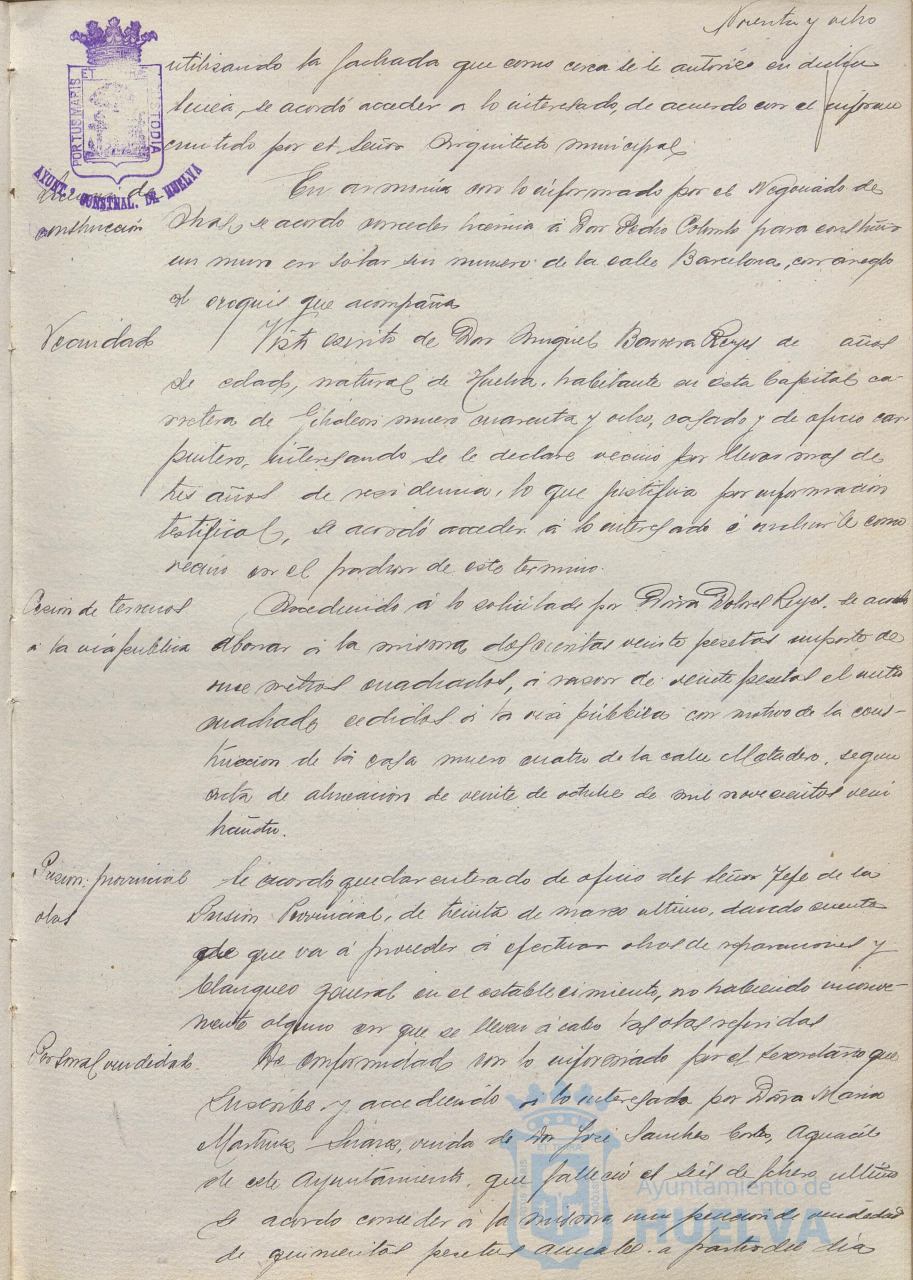 Noventa y ocho
utilizando la fachada que como cerca se le autorice en dicha
linea, se acordó acceder a lo interesado, de acuerdo con el informe
emitido por el Señor Arquitecto municipal.
PORTUS MARIS ET CUSTODIA
AYUNT.º CONSTNAL. DE HUELVA
Licencia de
construcción
En armonia con lo informado por el Negociado de
Obras, se acordo conceder licencia á Don Pedro Colombo para construir
un muro en solar sin numero de la calle Barcelona, con arreglo
al croquis que acompaña
Vecindad
Visto escrito de Don Miguel Barrera Reyes de años
de edad, natural de Huelva, habitante en esta Capital ca-
rretera de Gibraleon numero cuarenta y ocho, casado y de oficio car
pintero, interesando se le declare vecino por llevar mas de
tres años de residencia, lo que justifica por informacion
testifical, se acordó acceder á lo interesado é incluirle como
vecino en el padron de este termino.
Cesion de terrenos
a la via publica
Accediendo á lo solicitado por Doña Dolores Reyes, se acordo
abonar á la misma doscientas veinte pesetas importe de
once metros cuadrados, á razon de veinte pesetas el metro
cuadrado cedidos á la via pública con motivo de la cons-
truccion de la casa numero cuatro de la calle Matadero, segun
acta de alineacion de veinte de octubre de mil novecientos vein
Prision provincial
obras
Se acordo quedar enterado de oficio del Señor Jefe de la
Prision Provincial, de treinta de marzo ultimo, dando cuenta
de que va á proceder á efectuar obras de reparaciones y
blanqueo general en el establecimiento, no habiendo inconve-
niente alguno en que se lleven á cabo las obras referidas
Personal, viudedad.
De conformidad con lo informado por el Secretario que
suscribe y accediendo á lo interesado por Doña Maria
Martinez Suarez, viuda de Don José Sanchez Cortes, Aguacil
de este Ayuntamiento, que falleció el seis de febrero ultimo
se acordo conceder á la misma una pension de viudedad
de quinientas pesetas anuales á partir del dia
Ayuntamiento de
HUELVA